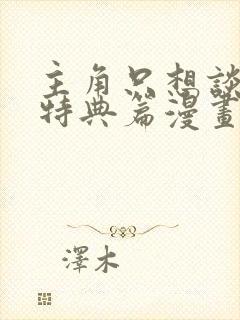 主角只想談
特典篇漫畫
澤木